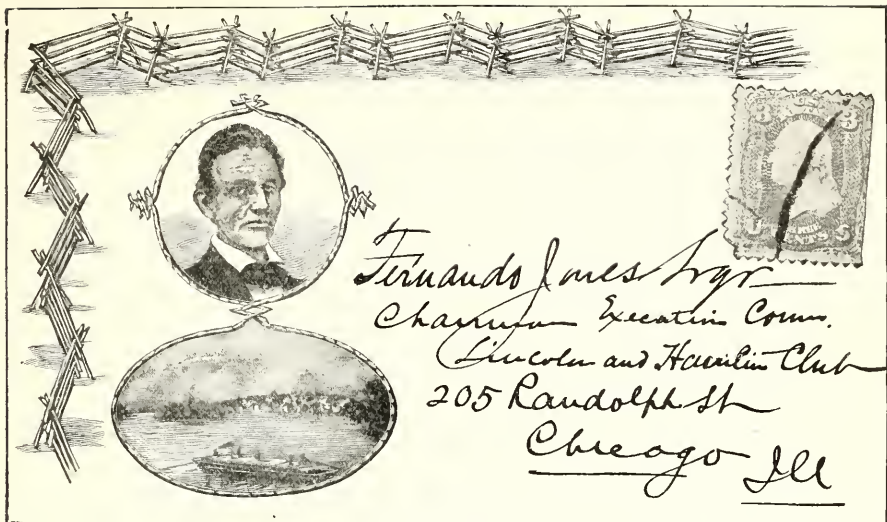 3 3
U S
Fernando Jones Esqr
Chairman Executive Comm.
Lincoln and Hamlin Club
205 Randolph St
Chicago Ill